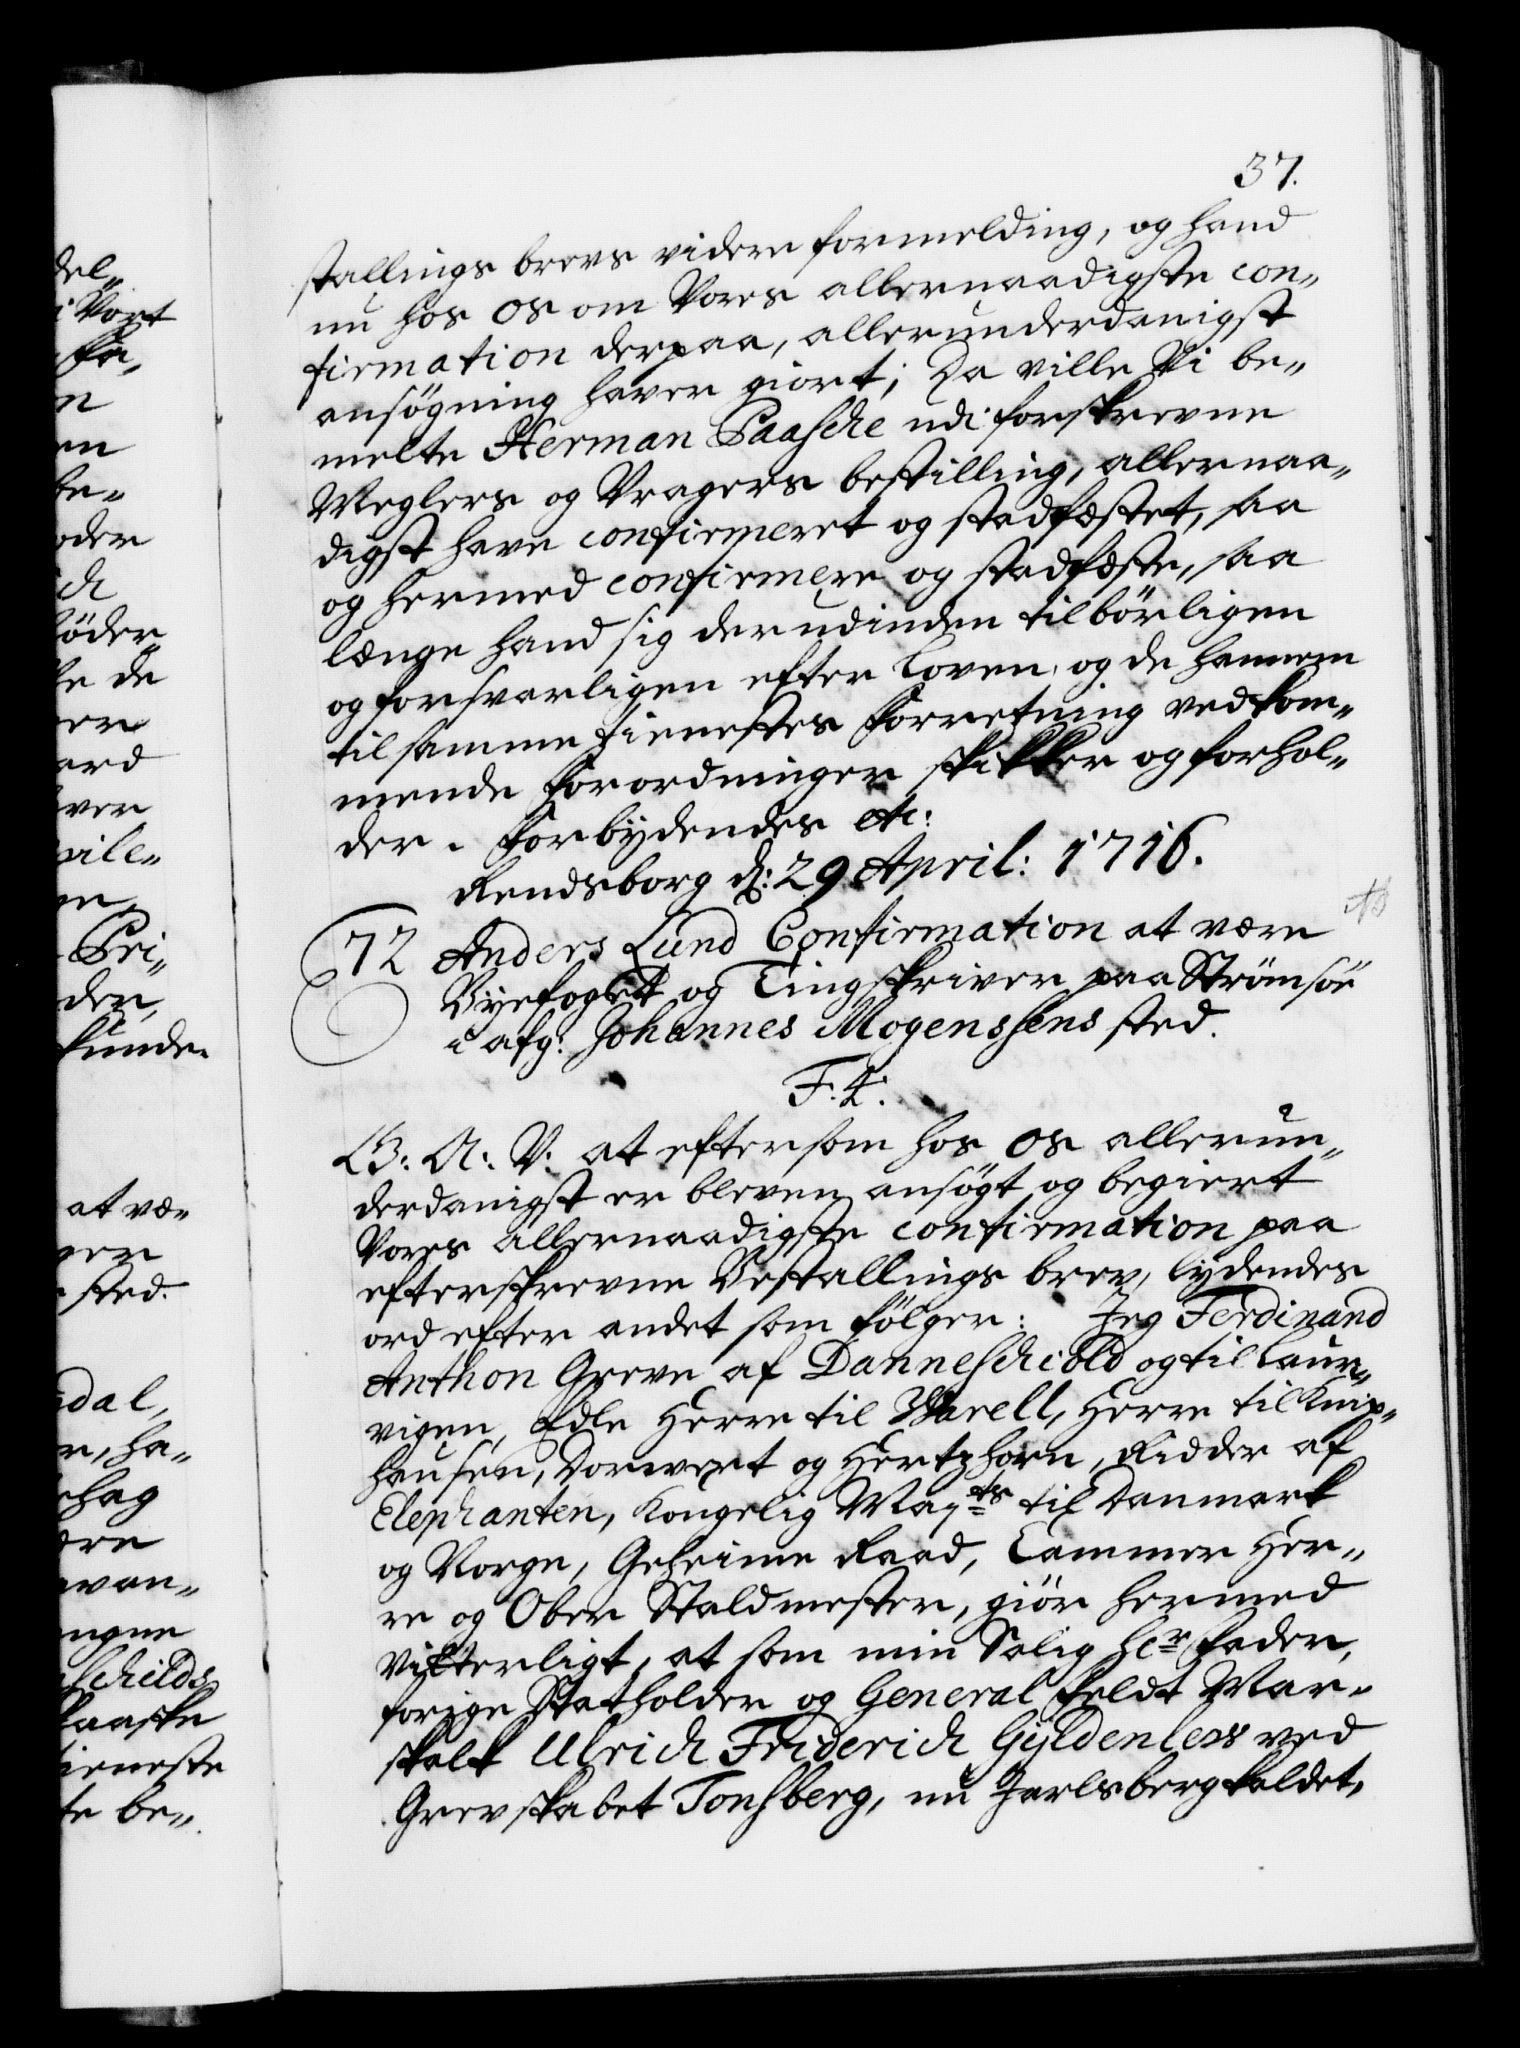 37.
stallings brevs videre formelding, og hand
nu hos os om Vores allernaadigste con„
firmation derpaa, allerunderdanigst
ansögning haver giort; Da ville Vi be„
melte Herman Paasche udi forskrevne
Meglers og Vragers bestilling, allernaa„
digst have confirmeret og stadfæstet, saa
og hermed confirmere og stadfæste, saa
længe hand sig derudinden tilbörligen
og forsvarligen efter Loven og de hannem
til samme tienestes forretning vedkom„
mende forordninger skikker og forhol„
der. Forbydendes etc:
Rendsborg d: 29 April: 1716.
72 Anders Lund Confirmation at være
Byefoget og Tingskriver paa Strömsöe
i afg: Johannes Mogenssens sted.
F. 4:
G: A: V: at eftersom hos os allerun„
derdanigst er bleven ansögt og begiert
Vores allernaadigste confirmation paa
efterskrevne Bestallings brev, lydendes
ord efter andet som fölger: Jeg Ferdinand
Anthon Greve af Danneschiold og til Laur„
vigen, Edle Herre til Varell, Herre til Knip„
hausen, Dorwert og Hertzhorn, Ridder af
Elephanten, Kongelig Mayts til Danmark
og Norge, Geheime Raad, Cammer Her„
re og Ober Staldmester, giör hermed
vitterligt, at som min Salig Hr Fader,
forige Statholder og General Feldt Mar„
skalk Ulrich Friderich Gyldenlew ved
Grevskabet Tonsberg, nu Jarlsberg kaldet,
del„
i Vort
fa„
n
en
be„
oder
ch
öder„
e de
er
ard
ver
vile„
m,
Pri„
der,
kunde.
at væ„
ger
sted.
dal,
r, ha„
ehag
ære
avan„
ngne
schilds
Paaske
tieneste
te be„